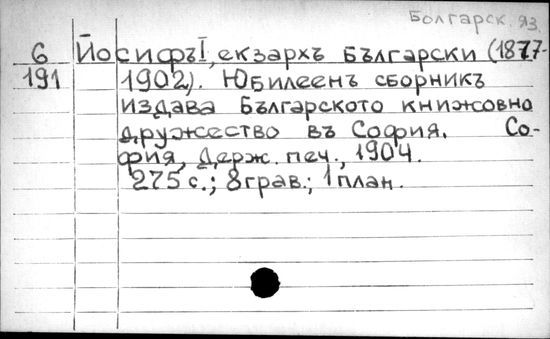 Болгарск. яз.
6 Йосифъ I, екзархъ Български (1877-
191 1902). Юбилеенъ сборникъ
издава Българското книжовно
дружество въ София. Со-
фия, Держ. печ., 1904.
275 с.; 8 грав.; 1 план.